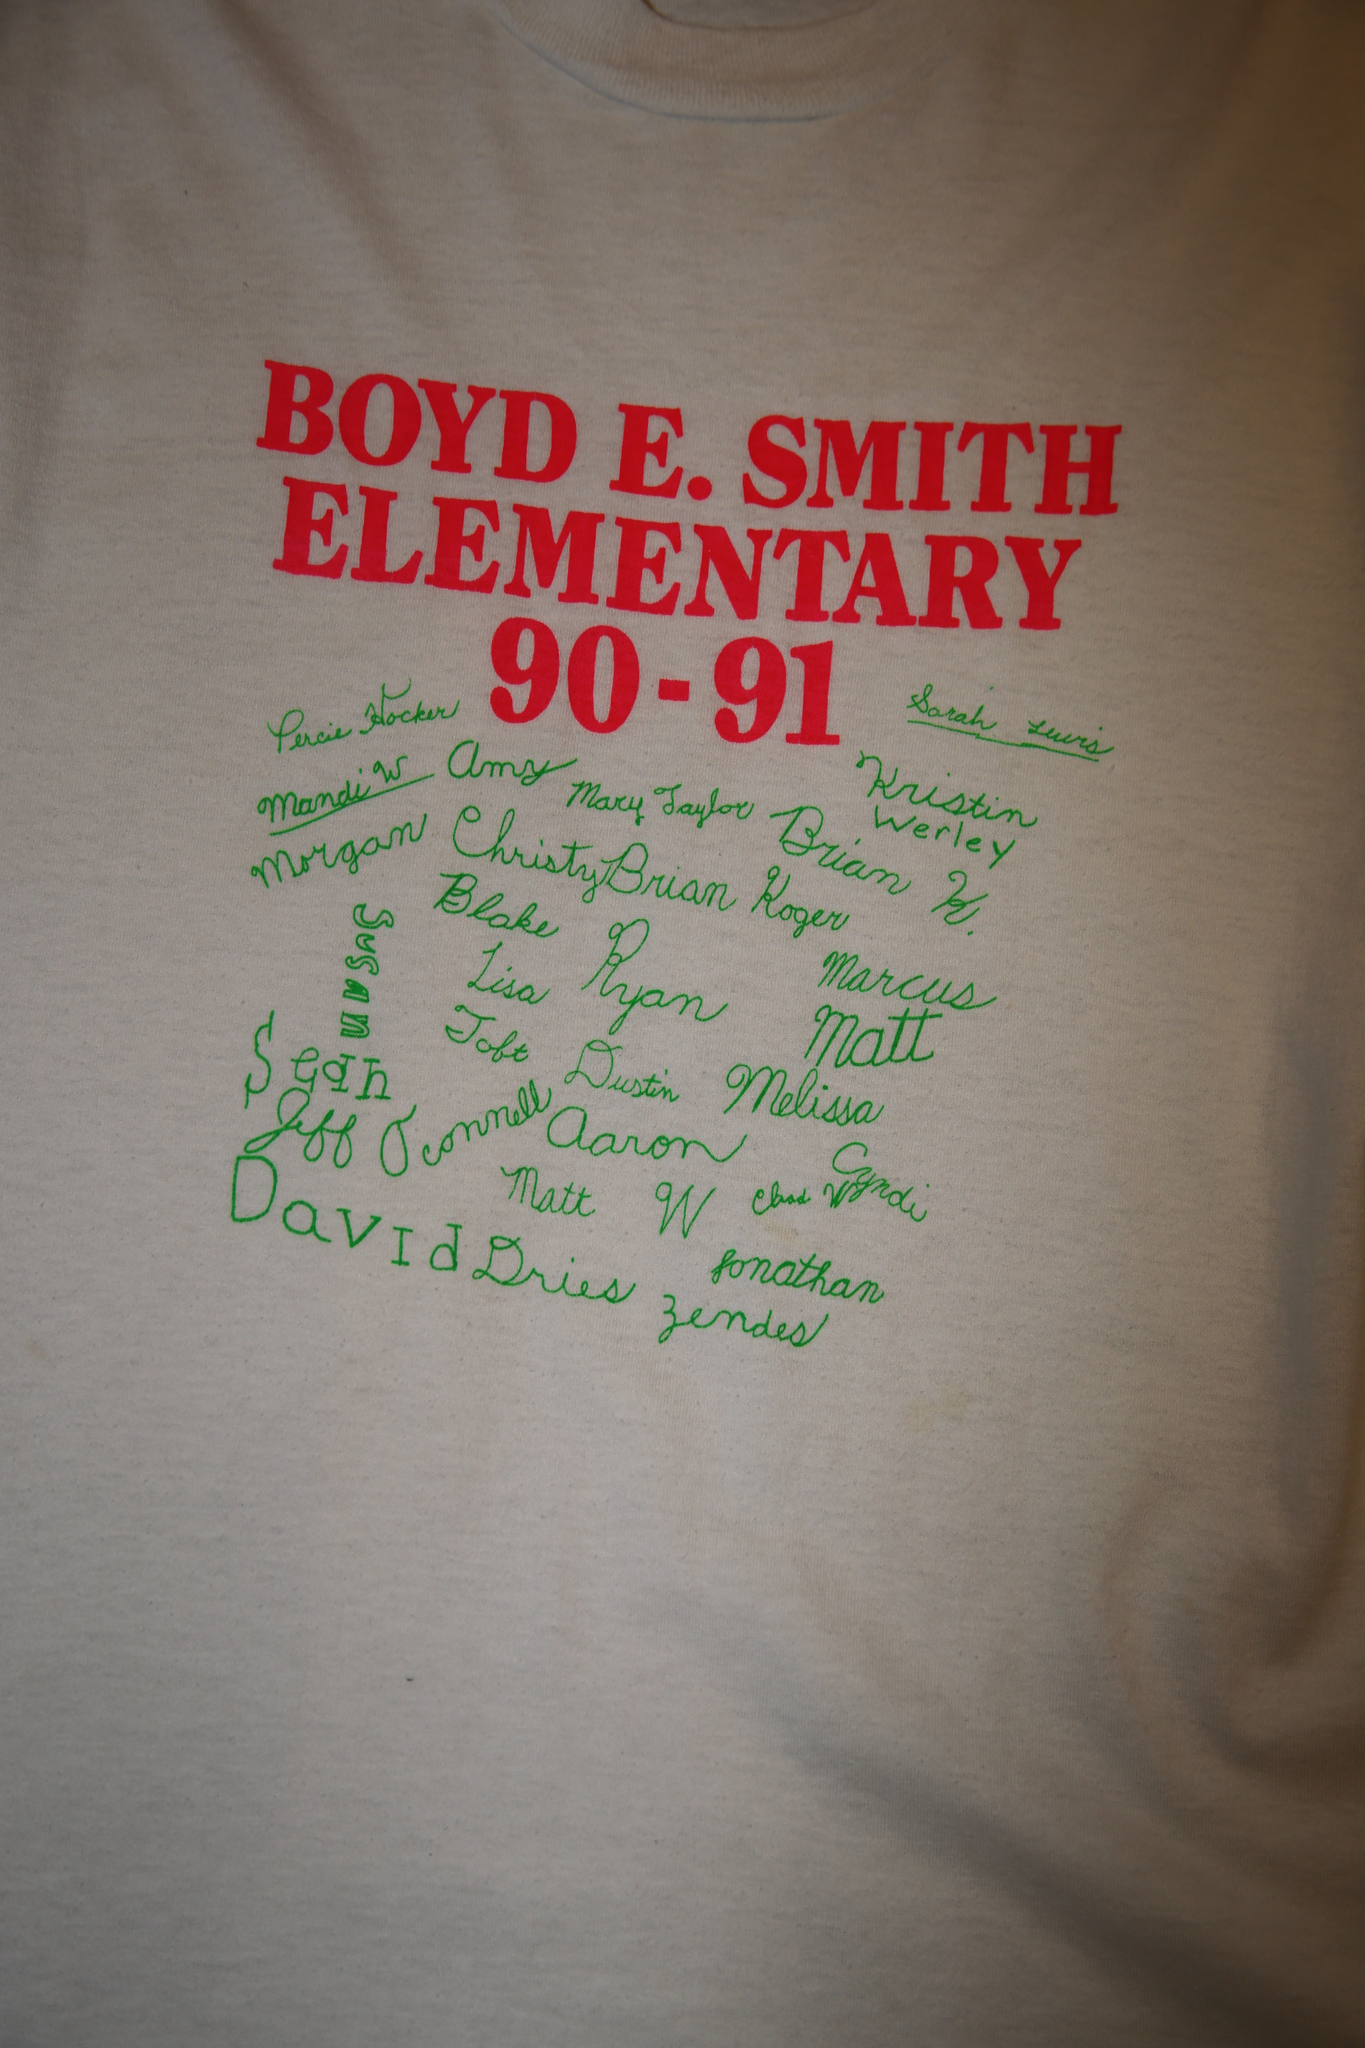 BOYD E. SMITH
ELEMENTARY
90-91
Percie Hocker
Sarah Lewis
Mandi W
Amy
Mary Taylor
Kristin
Werley
Morgan
Christy
Brian Koger
Brian K.
Susan
Blake
Lisa
Ryan
Marcus
Matt
Sean
Toft
Dustin
Melissa
Jeff O'Connell
Aaron
Cyndi
David Dries
Matt W
Chad W
Jonathan
Zendes